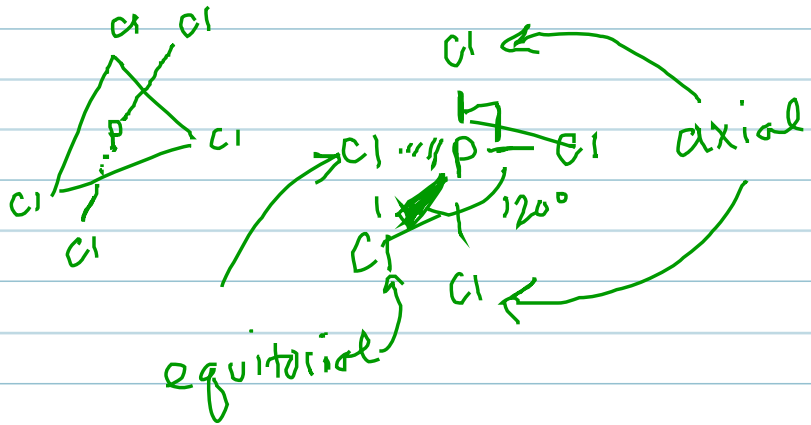 Cl Cl
P
Cl
Cl
Cl
Cl
axial
Cl P Cl
120°
Cl
Cl
equitorial